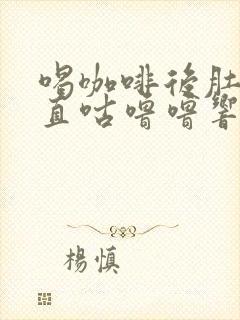 喝咖啡後肚
直咕嚕嚕響
楊慎